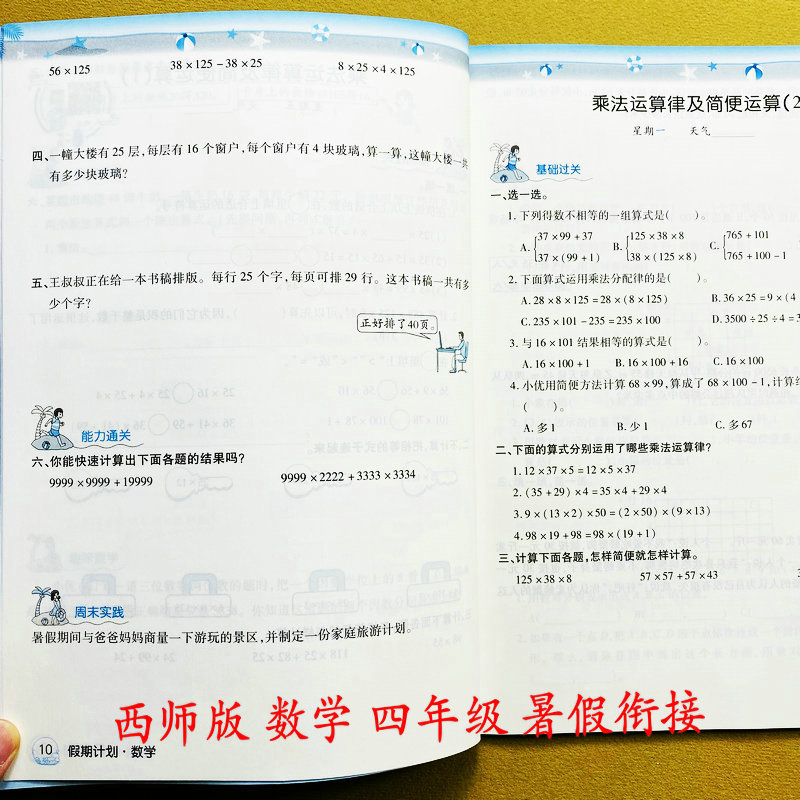 56×125
38×125-38×25
8×25×4×125
四、一幢大楼有25层,每层有16个窗户,每个窗户有4块玻璃,算一算,这幢大楼一共
有多少块玻璃?
五、王叔叔正在给一本书稿排版。每行25个字,每页可排29行。这本书稿一共有多
少个字?
正好排了40页。
能力通关
六、你能快速计算出下面各题的结果吗?
9999×9999+19999
9999×2222+3333×3334
周末实践
暑假期间与爸爸妈妈商量一下游玩的景区,并制定一份家庭旅游计划。
10 假期计划·数学
乘法运算律及简便运算(2
星期一 天气
基础过关
一、选一选。
1.下列得数不相等的一组算式是( )。
A. 37×99+37 B. 125×38×8 C. 765+101
37×(99+1) 38×(125×8) 765+100-1
2.下面算式运用乘法分配律的是( )。
A.28×8×125=28×(8×125) B.36×25=9×(4
C.235×101-235=235×100 D.3500÷25÷4=3
3.与16×101结果相等的算式是( )。
A.16×100+1 B.16×100+16 C.16×100
4.小优用简便方法计算68×99,算成了68×100-1,计算结
( )。
A.多1 B.少1 C.多67
二、下面的算式分别运用了哪些乘法运算律?
1.12×37×5=12×5×37
2.(35+29)×4=35×4+29×4
3.9×(13×2)×50=(2×50)×(9×13)
4.98×19+98=98×(19+1)
三、计算下面各题,怎样简便就怎样计算。
125×38×8 57×57+57×43
西师版 数学 四年级 暑假衔接